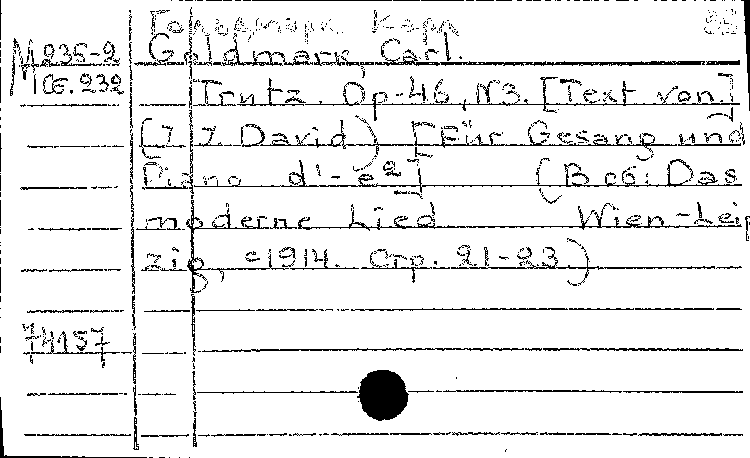 Гольдмарк Карл
М 235-2 Goldmark, Carl.
Сб. 232
Trutz. Op-46, N3. [Text von]
(J. J. David) [Für Gesang und
Piano d'-e²] (В сб: Das
moderne Lied Wien-Leip
zig, c1914. Стр. 21-23)
74157